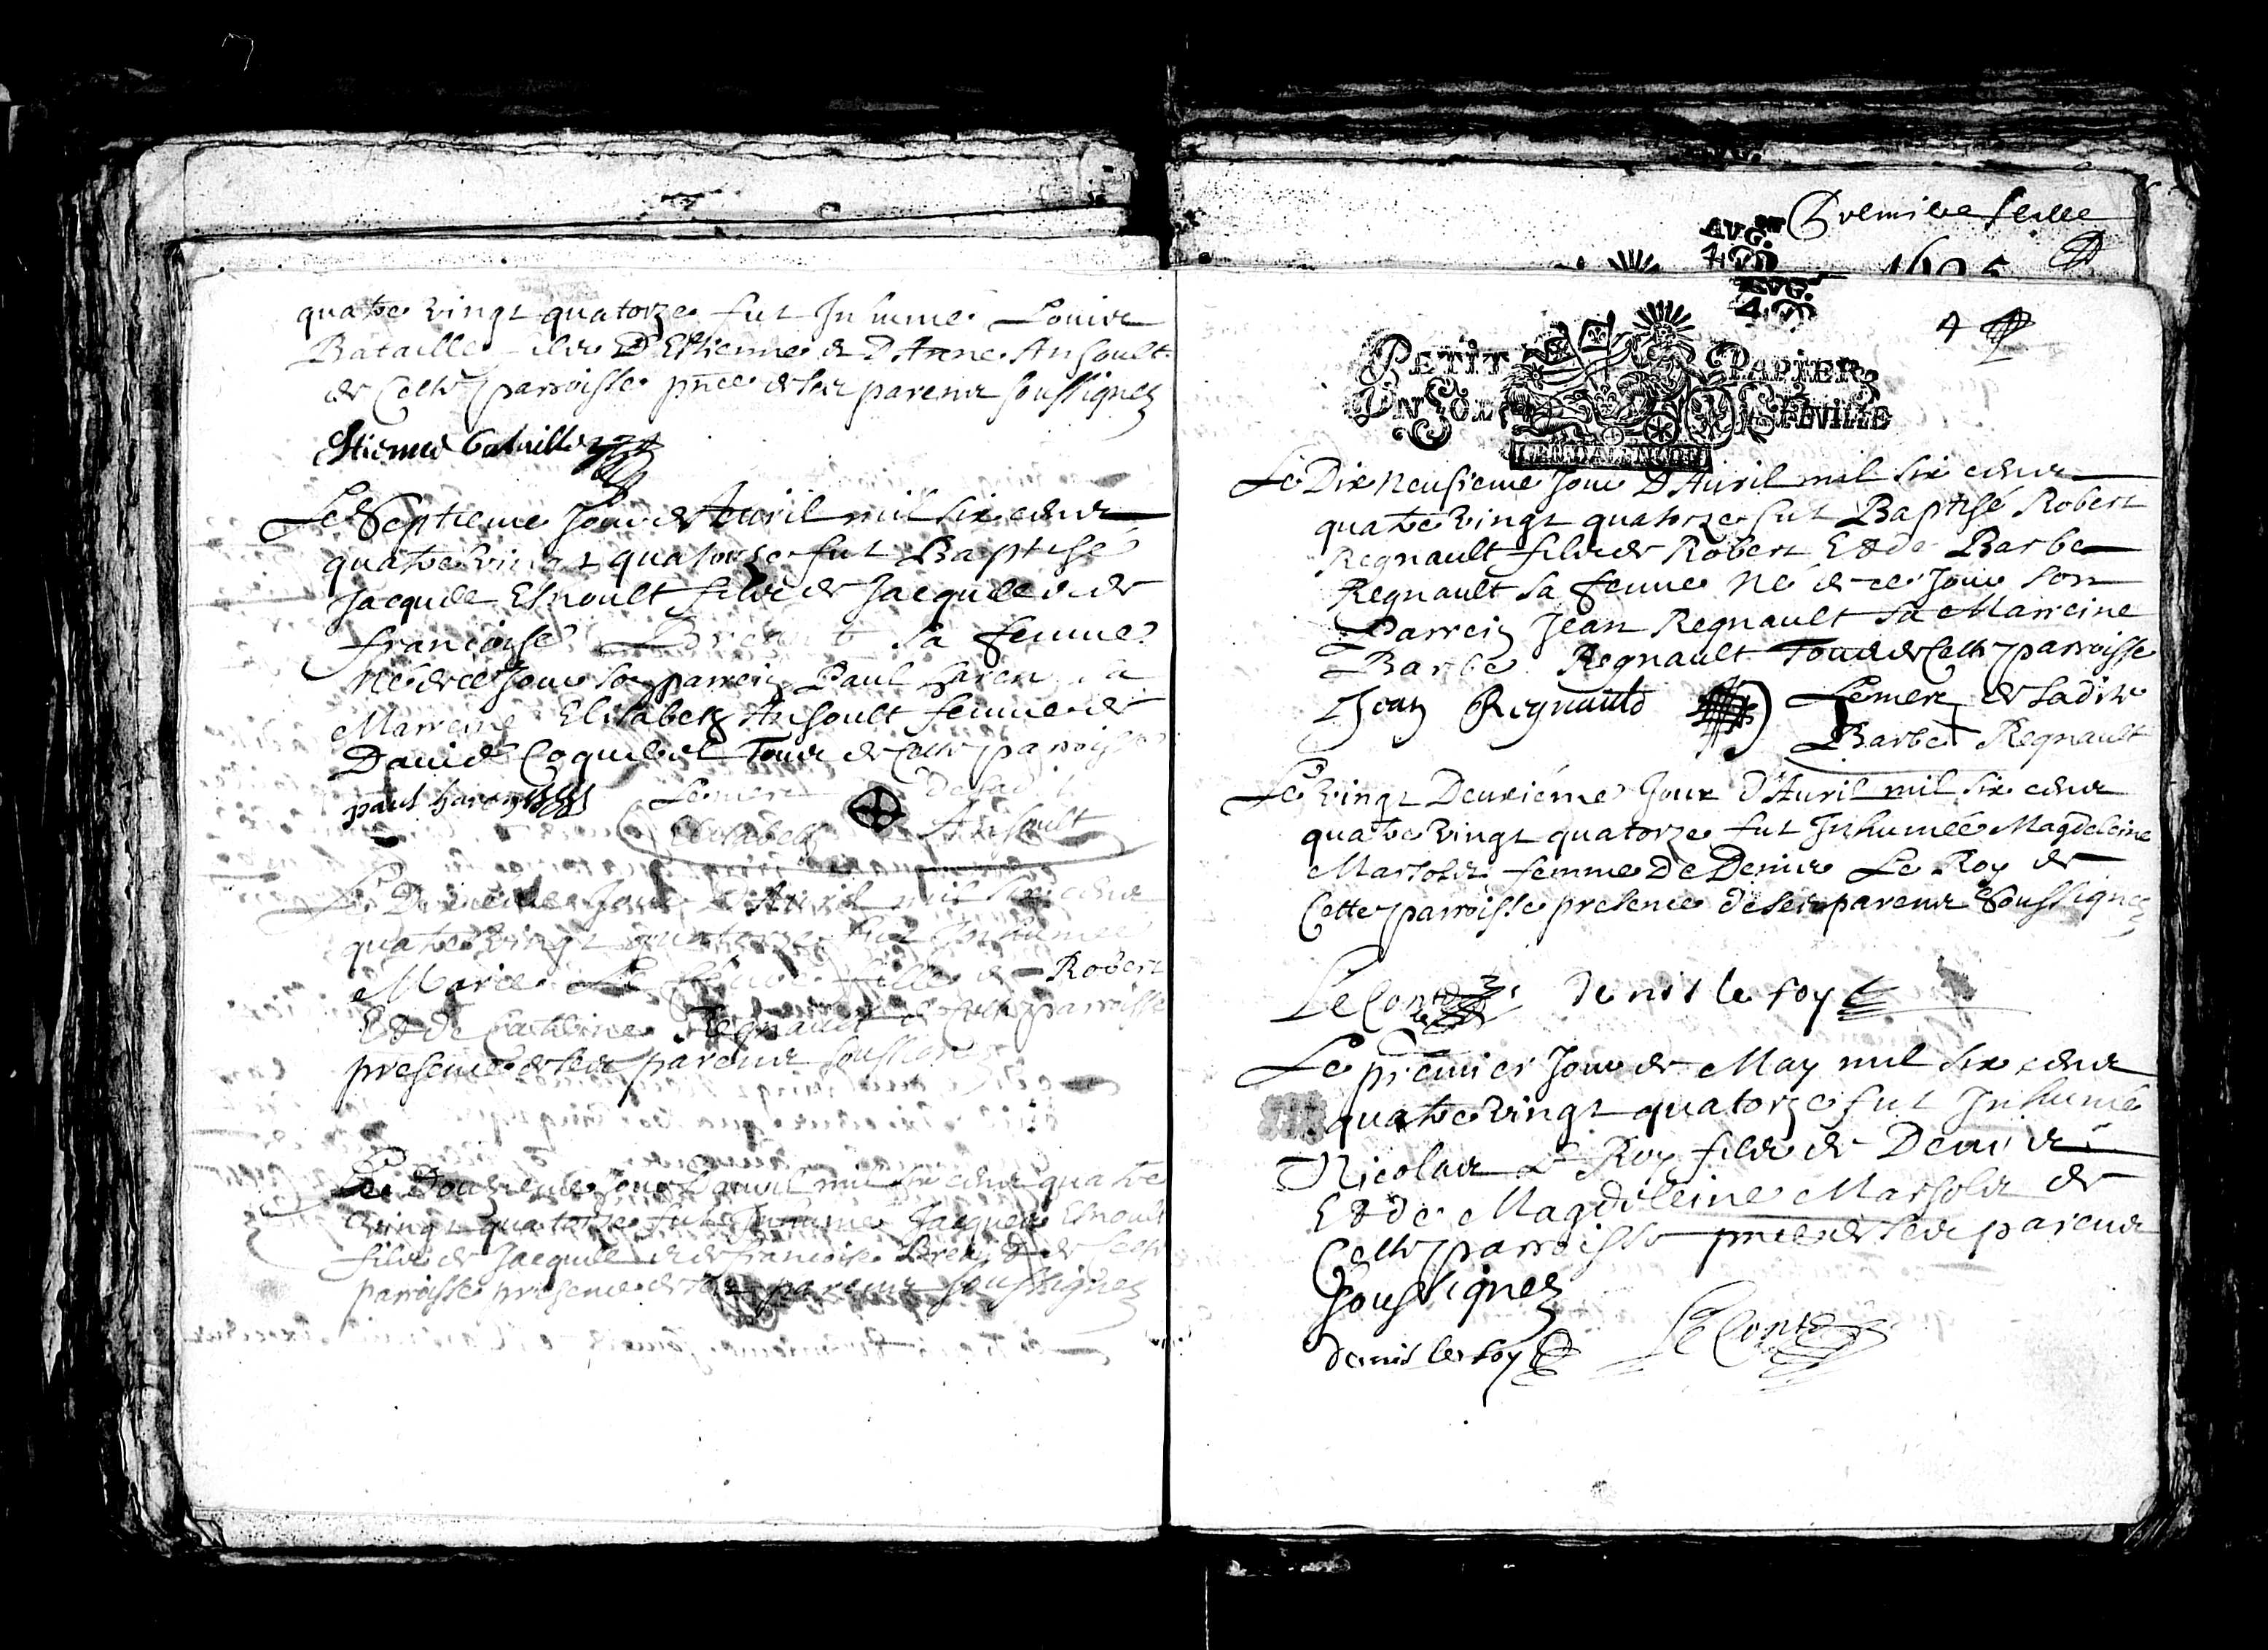 quatre vingt quatorze fut Inhumé Louis
Bataille fils D'Estienne & D'Anne Ansoult
de Cette parroisse pnce de ses parens soussignez
Estienne bataille
Le Septieme Jour de Avril mil six cens
quatre vingt quatorze fut Baptisé
Jacques Esnoult fils de Jacques & de
francoise sa femme
Né de ce Jour son parrein Paul haren sa
Marreine Elisabeth Ansoult femme de
David Coquerel Tous de Cette parroisse
paul haren Lemerc de ladite
Elisabeth Ansoult
Le Jour D'Avril mil six cens
quatre vingt quatorze fut Inhumée
Marie Le fille de Robert
Et de Catherine Regnault de Cette parroisse
presence de ses parens soussignez
Le Douzieme Jour Davril mil six cens quatre
vingt quatorze fut Inhumé Jacques Esnoult
fils de Jacques & de francoise de Cette
parroisse presence de ses parens soussignez
Premiere feuille
1695
AVG.
4 D
AVG.
4 D
4
PETIT PAPIER
UN SOL LA FEVILLE
Le Dix Neufieme Jour D'Avril mil six cens
quatre vingt quatorze fut Baptisé Robert
Regnault fils de Robert Et de Barbe
Regnault sa femme Né de ce Jour son
Parrein Jean Regnault sa Marreine
Barbe Regnault Tous de Cette parroisse
Jean Regnauld Lemerc de ladite
Barbe Regnault
Le vingt Deuxiéme Jour D'Avril mil six cens
quatre vingt quatorze fut Inhumée Magdeleine
Marsolis femme De Denis Le Roy de
Cette parroisse presence de ses parens Soussignez
Le Conte denis le roy
Le premier Jour de May mil six cens
quatre vingt quatorze fut Inhumé
Nicolas Le Roy fils de Denis
Et de Magdeleine Marsolis de
Cette parroisse pnce de ses parens
soussignez
denis le roy Le Conte